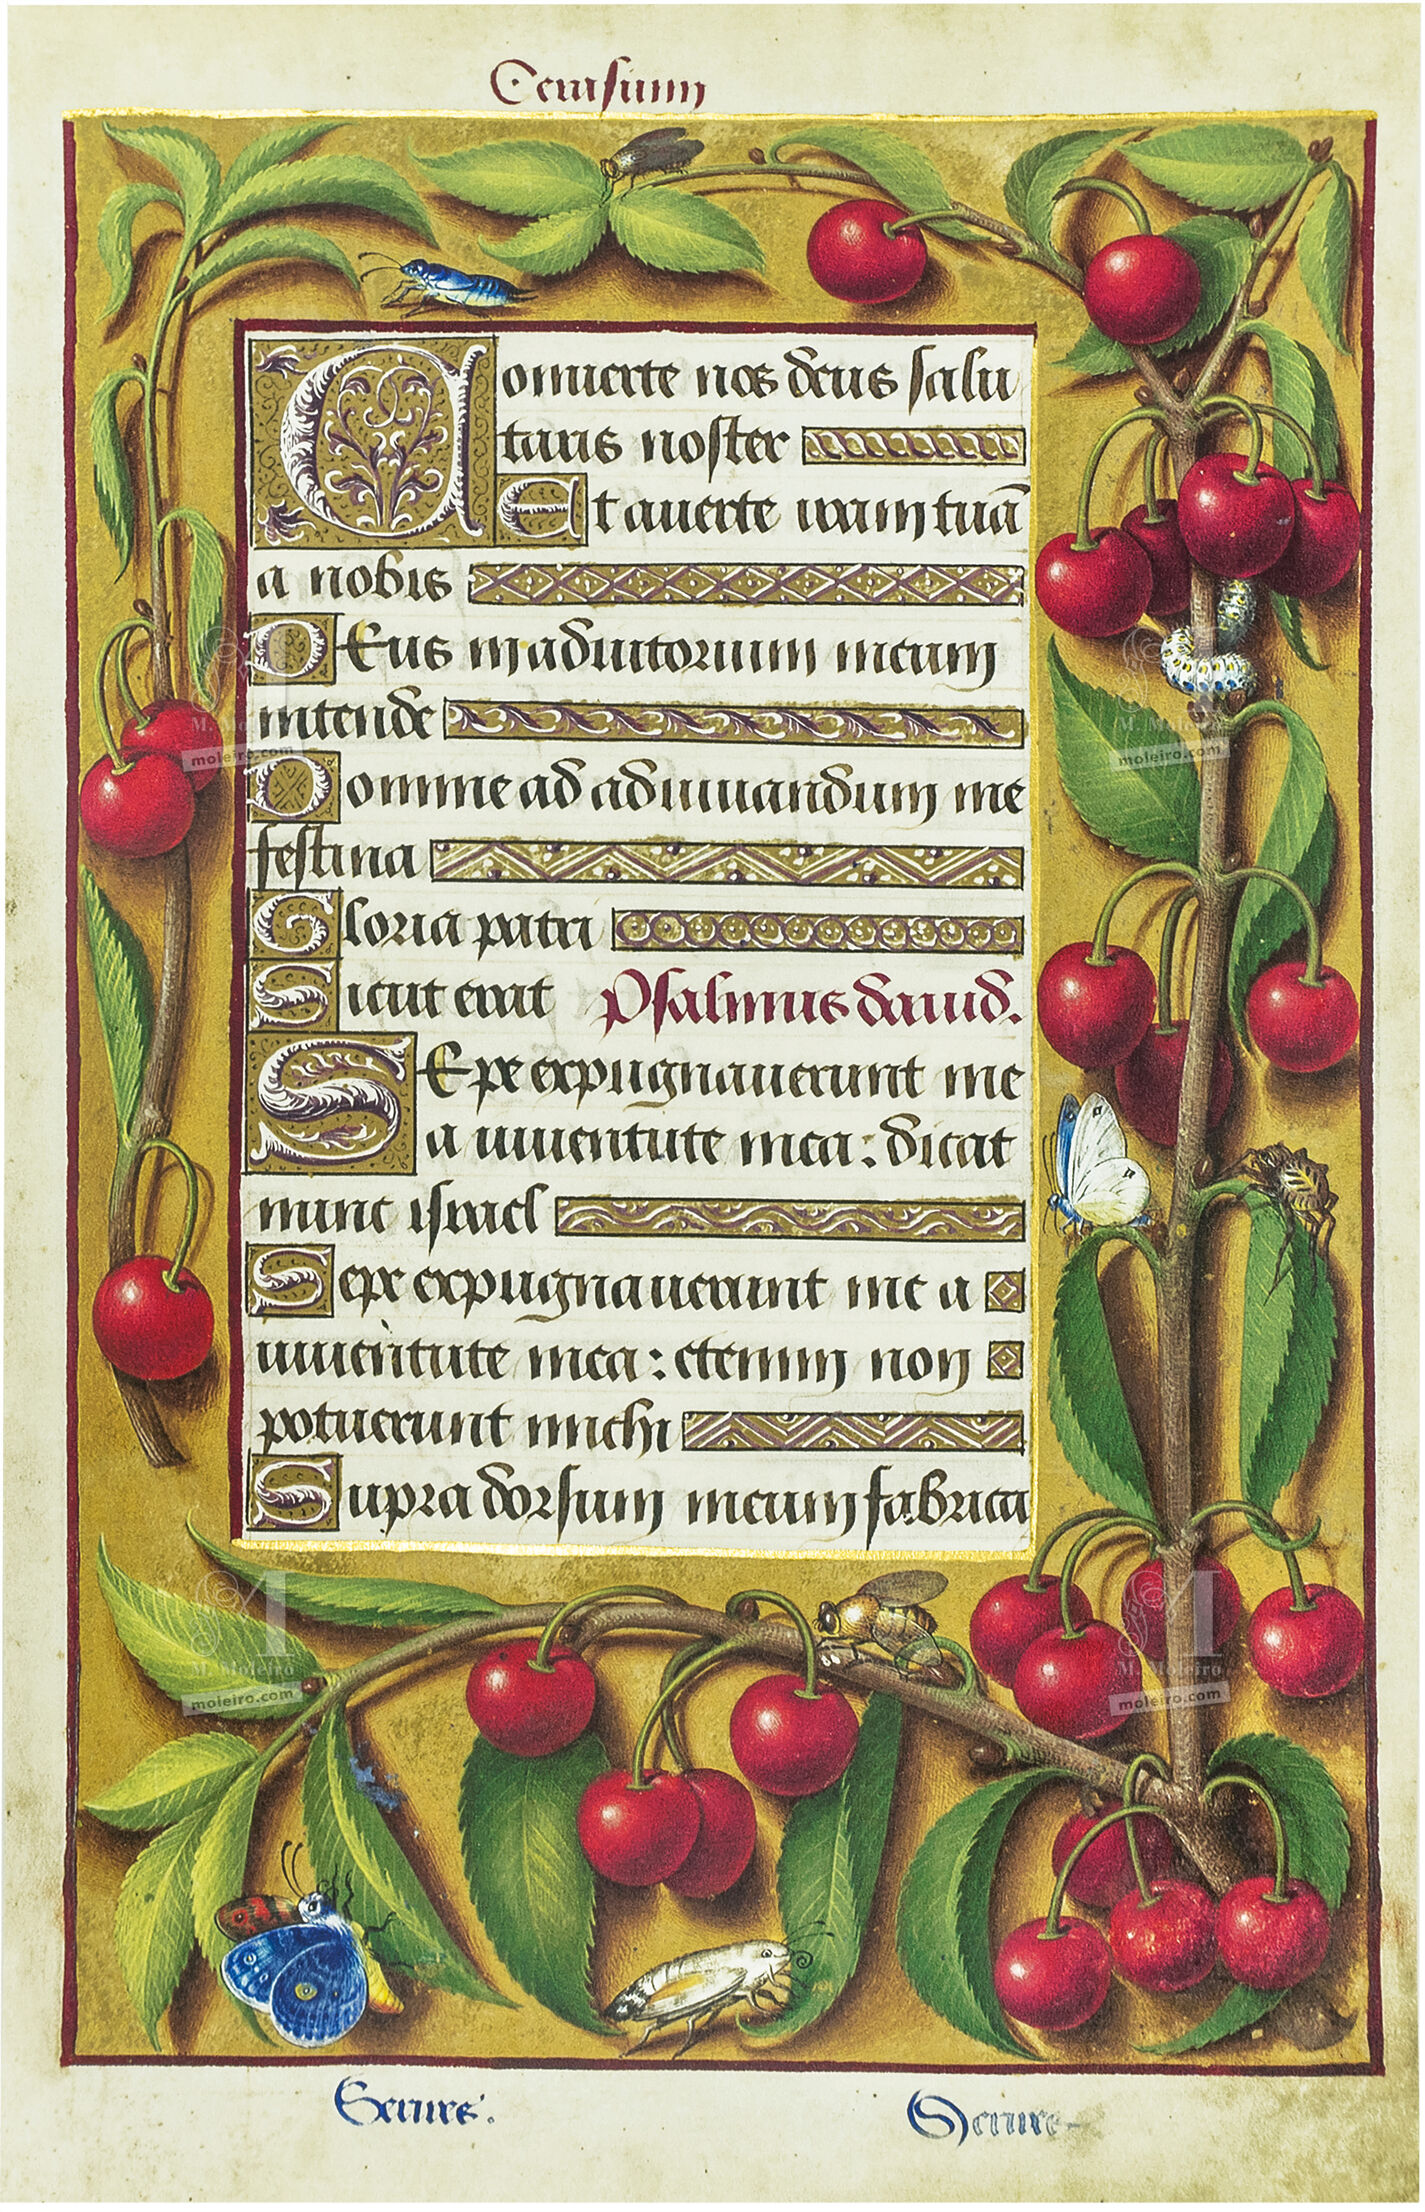 Cerasium
Conuerte nos deus salu
taris noster
Et auerte iram tuā
a nobis
DEus in adiutorium meum
intende
Domine ad adiuuandum me
festina
Gloria patri
Sicut erat Psalmus dauid.
SEpe expugnauerunt me
a iuuentute mea: dicat
nunc israel
Sepe expugnauerunt me a
iuuentute mea: etenim non
potuerunt michi
Supra dorsum meum fabrica
M. Moleiro
moleiro.com
M. Moleiro
moleiro.com
M. Moleiro
moleiro.com
M. Moleiro
moleiro.com